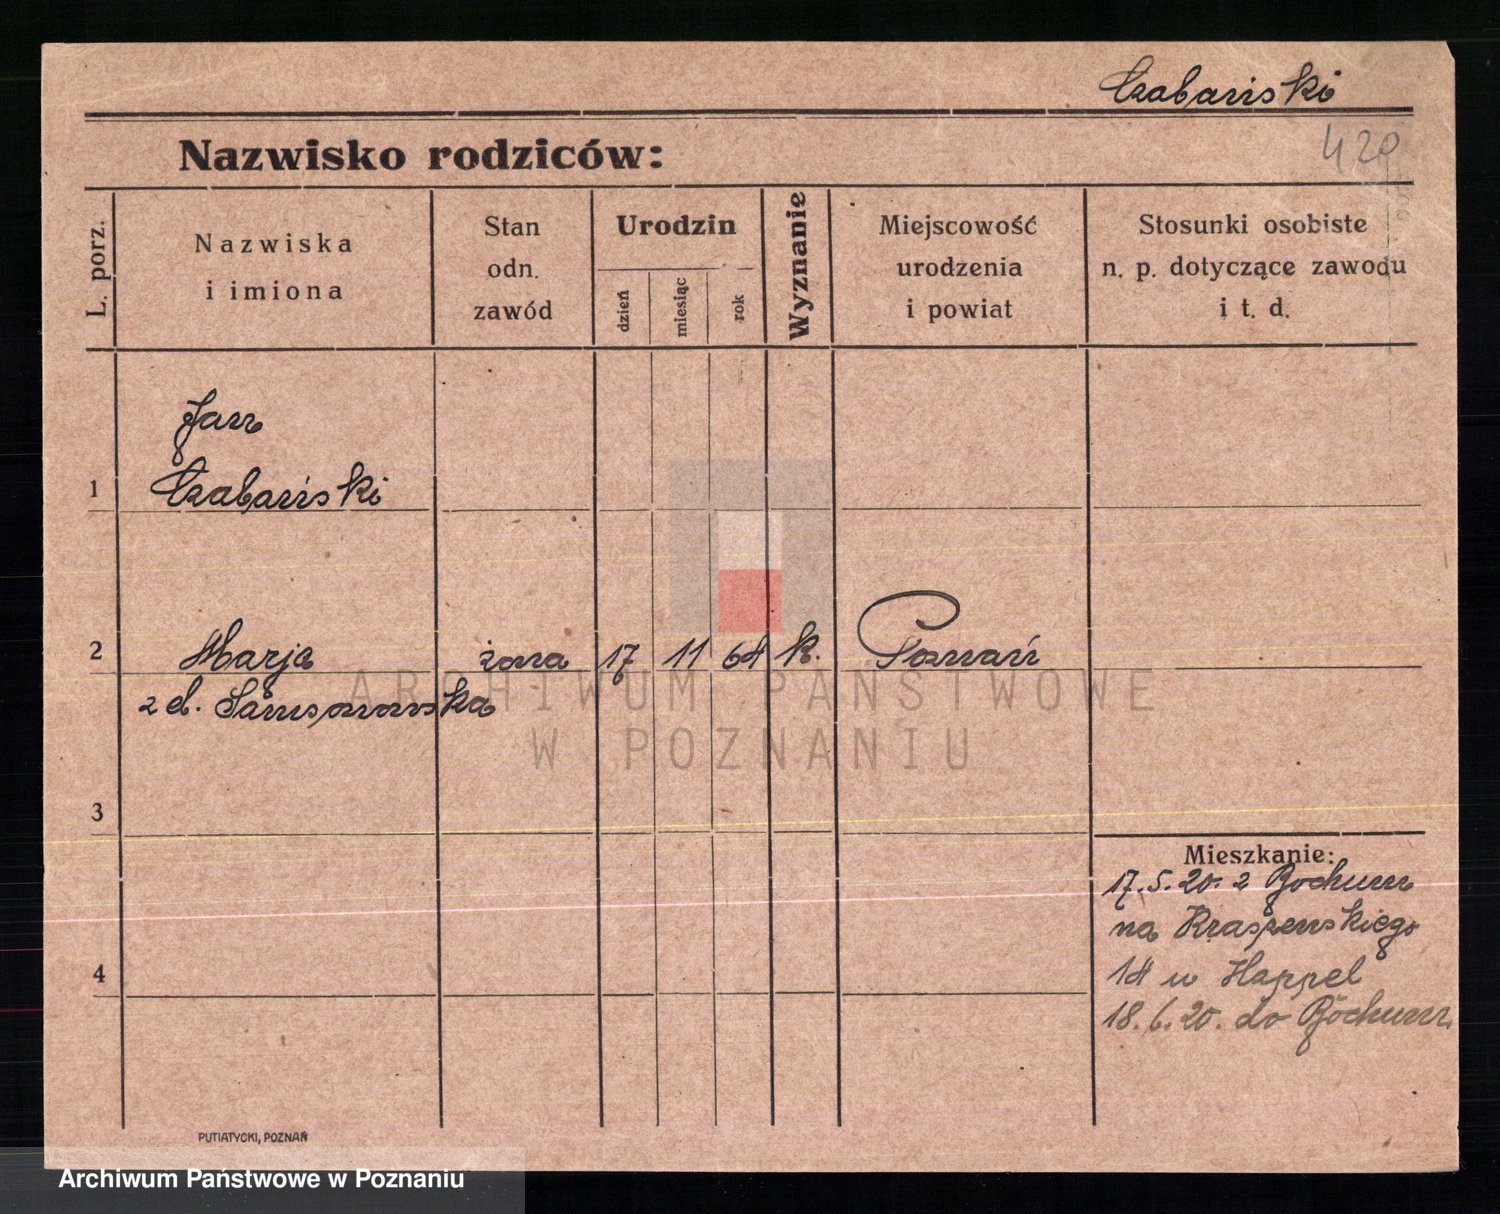 Czabański
Nazwisko rodziców:
420
L. porz.
Nazwiska
i imiona
Stan
odn.
zawód
Urodzin
dzień
miesiąc
rok
Wyznanie
Miejscowość
urodzenia
i powiat
Stosunki osobiste
n. p. dotyczące zawodu
i t. d.
Jan
1 Czabański
2 Marja żona 17 11 64 k. Poznań
z d.
3
Mieszkanie:
17.5.20. z Bochum
na
4
14 u Happel
18.6.20. do Bochum
PUTIATYCKI, POZNAŃ
ARCHIWUM PAŃSTWOWE
W POZNANIU
Archiwum Państwowe w Poznaniu